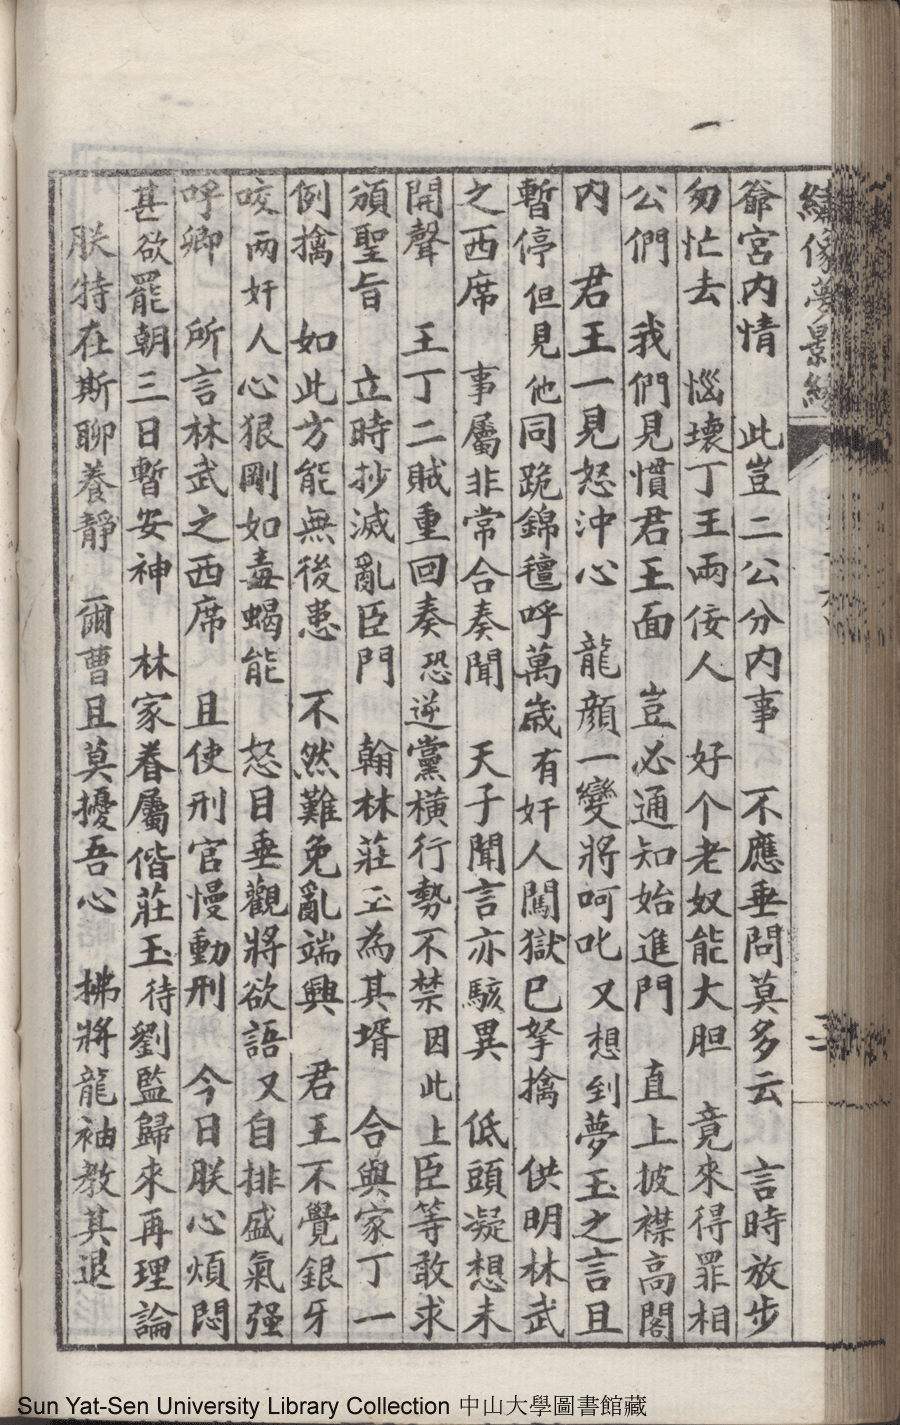 繡像夢景緣
爺宮內情　此豈二公分內事　不應垂問莫多云　言時放步
匆忙去　惱壞丁王兩佞人　好个老奴能大胆　竟來得罪相
公們　我們見慣君王面　豈必通知始進門　直上披襟高閣
內　君王一見怒沖心　龍顔一變將呵叱又想到夢玉之言且
暫停但見他同跪錦氊呼萬歲有奸人闖獄已拏擒　供明林武
之西席　事屬非常合奏聞　天子聞言亦駭異　低頭凝想未
開聲　王丁二賊重回奏恐逆黨橫行勢不禁因此上臣等敢求
頒聖旨　立時抄滅亂臣門　翰林莊玉為其壻　合與家丁一
例擒　如此方能無後患　不然難免亂端興　君王不覺銀牙
咬兩奸人心狠剛如毒蝎能　怒目垂觀將欲語又自排盛氣强
呼卿　所言林武之西席　且使刑官慢動刑　今日朕心煩悶
甚欲罷朝三日暫安神　林家眷屬偕莊玉待劉監歸來再理論
朕特在斯聊養靜　爾曹且莫擾吾心　拂將龍袖教其退
Sun Yat-Sen University Library Collection 中山大學圖書館藏